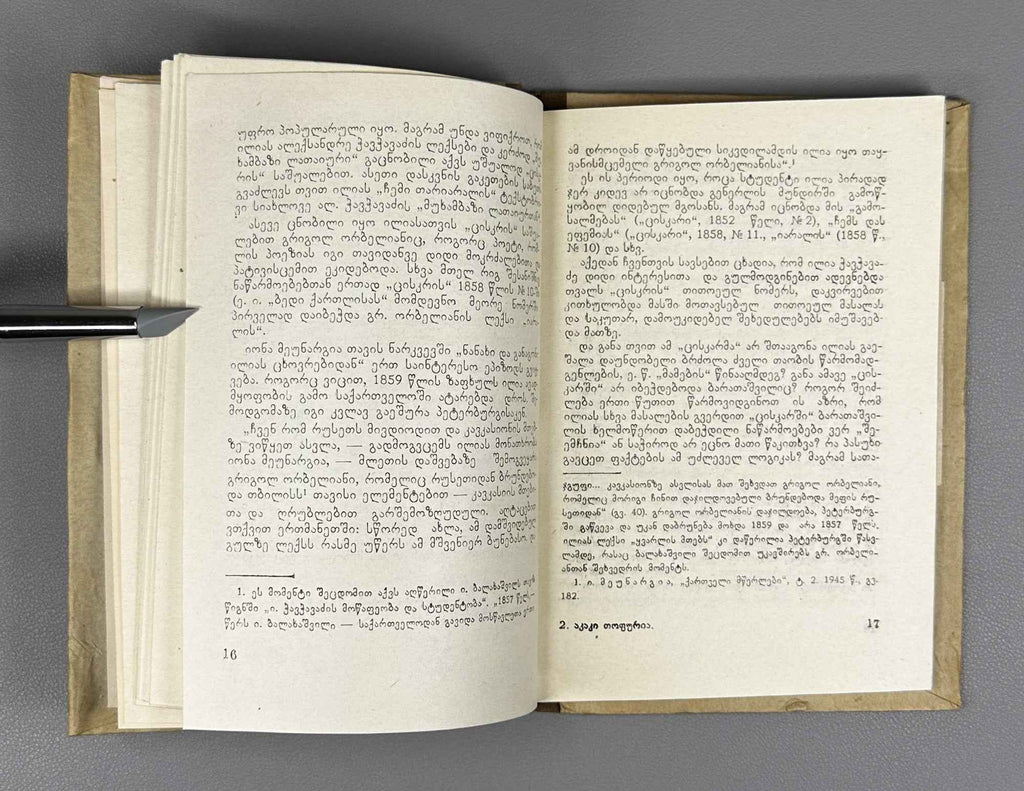 უფრო პოპულარული იყო. მაგრამ უნდა ვიფიქროთ,
ილიას ალექსანდრე ჭავჭავაძის ლექსები და კერძოდ
ხამბაზი ლათაიური“ გაცნობილი აქვს უშუალოდ
რის“ საშუალებით. ასეთი დასკვნის გაკეთების
გვაძლევს თვით ილიას „ჩემი თარიარალის“
ვი სიახლოვე ალ. ჭავჭავაძის „მუხამბაზი
ასევე ცნობილი იყო ილიასათვის „ცისკრის“
ლებით გრიგოლ ორბელიანიც, როგორც პოეტი,
ლის პოეზიას იგი თავიდანვე დიდი მოკრძალებითა
პატივისცემით ეკიდებოდა. სხვა მთელ რიგ
ნაწარმოებებთან ერთად „ცისკრის“ 1858 წლის
(ე. ი. „ბედი ქართლისას“ მომდევნო მეორე ნომერში
პირველად დაიბეჭდა გრ. ორბელიანის ლექსი
ლის“.
იონა მეუნარგია თავის ნარკვევში „ნანახი და
ილიას ცხოვრებიდან“ ერთ საინტერესო ეპიზოდს
ვება. როგორც ვიცით, 1859 წლის ზაფხულს ილია
მყოფობის გამო საქართველოში ატარებდა დროს.
მოდგომაზე იგი კვლავ გაეშურა პეტერბურგისაკენ.
„ჩვენ რომ რუსეთს მივდიოდით და კავკასიონის
ზე ვიწყეთ ასვლა, — გადმოგვცემს ილიას მონათხრობს
იონა მეუნარგია, — მლეთის დაშვებაზე
გრიგოლ ორბელიანი, რომელიც რუსეთიდან
და თბილისს¹ თავისი ელემენტებით — კავკასიის
თა და ღრუბლებით გარშემოზღუდული.
ვთქვით ერთმანეთში: სწორედ ახლა, ამ
გულზე ლექსს რასმე უწერს ამ მშვენიერ ბუნებასო
1. ეს მომენტი შეცდომით აქვს აღწერილი ი. ბალახაშვილს
წიგნში „ი. ჭავჭავაძის მოწაფეობა და სტუდენტობა“. „1857
წერს ი. ბალახაშვილი — საქართველოდან გავიდა
16
ამ დროიდან დაწყებული სიკვდილამდის ილია იყო თაყ-
ვანისმცემელი გრიგოლ ორბელიანისა“.¹
ეს ის პერიოდი იყო, როცა სტუდენტი ილია პირადად
ჯერ კიდევ არ იცნობდა გენერლის მუნდირში გამოწ-
ყობილ დიდებულ მგოსანს. მაგრამ იცნობდა მის „გამო-
სალმებას“ („ცისკარი“, 1852 წელი, № 2), „ჩემს დას
ეფემიას“ („ცისკარი“, 1858, № 11., „იარალის“ (1858 წ.,
№ 10) და სხვ.
აქედან ჩვენთვის სავსებით ცხადია, რომ ილია ჭავჭავა-
ძე დიდი ინტერესითა და გულმოდგინებით ადევნებდა
თვალს „ცისკრის“ თითოეულ ნომერს, დაკვირვებით
კითხულობდა მასში მოთავსებულ თითოეულ მასალას
და საკუთარ, დამოუკიდებელ შეხედულებებს იმუშავებ-
და მათზე.
და განა თვით ამ „ცისკარმა“ არ შთააგონა ილიას გაე-
შალა დაუნდობელი ბრძოლა ძველი თაობის წარმომად-
გენლების, ე. წ. „მამების“ წინააღმდეგ? განა ამავე „ცის-
კარში“ არ იბეჭდებოდა ბარათაშვილიც? როგორ შეიძ-
ლება ერთი წუთით წარმოვიდგინოთ ის აზრი, რომ
ილიას სხვა მასალების გვერდით „ცისკარში“ ბარათაშვი-
ლის ხელმოწერით დაბეჭდილი ნაწარმოებები ვერ „შე-
ემჩნია“ ან საჭიროდ არ ეცნო მათი წაკითხვა? რა პასუხი
გავცეთ ფაქტების ამ უძლეველ ლოგიკას? მაგრამ სათა-
ჯგუფი... კავკასიონზე ასვლისას მათ შეხვდათ გრიგოლ ორბელიანი,
რომელიც მორიგი ჩინით დაჯილდოვებული ბრუნდებოდა მეფის რუ-
სეთიდან“ (გვ. 40). გრიგოლ ორბელიანის დაჯილდოება, პეტერბურგ-
ში გაწვევა და უკან დაბრუნება მოხდა 1859 და არა 1857 წელს.
ილიას ლექსი „ყვარლის მთებს“ კი დაწერილია პეტერბურგში წასვ-
ლამდე, რასაც ბალახაშვილი შეცდომით უკავშირებს გრ. ორბელი-
ანთან შეხვედრის მომენტს.
1. ი. მეუნარგია, „ქართველი მწერლები“, ტ. 2. 1945 წ., გვ.
182.
2. აკაკი თოფურია.
17